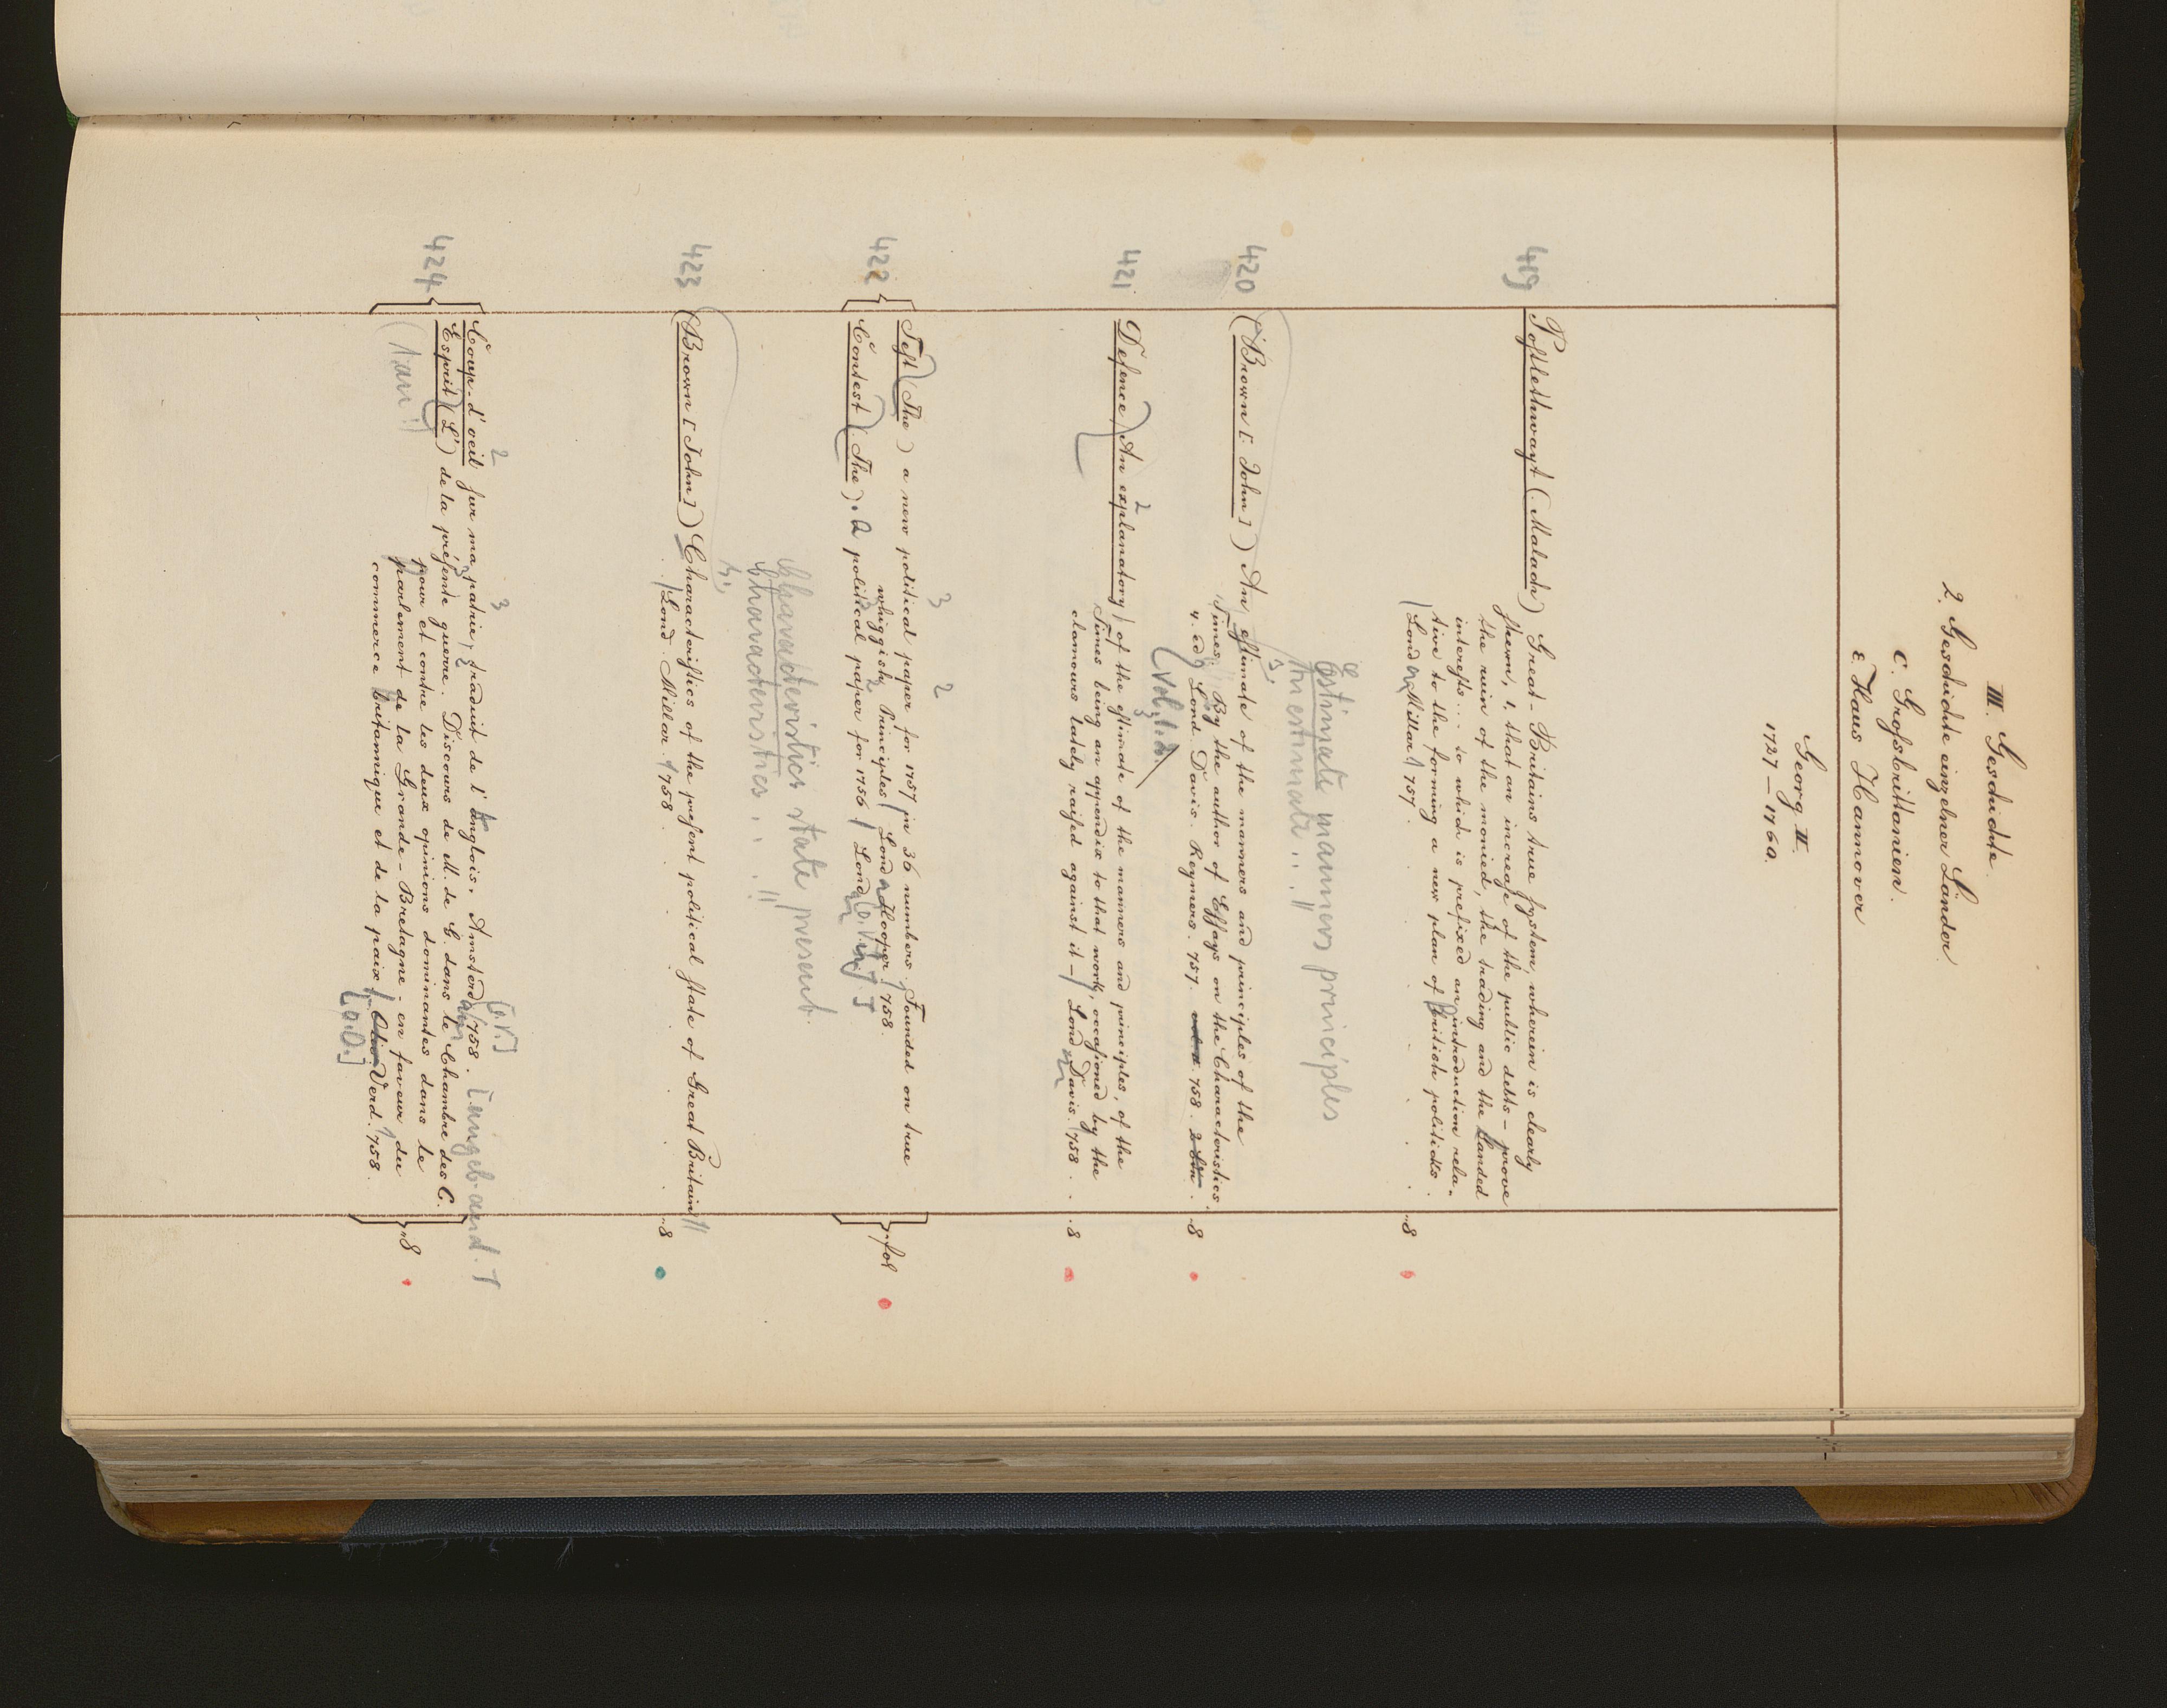 III. Geschichte.
2. Geschichte einzelner Länder
C. Großbrittanien.
ε. Haus Hannover
Georg II.
1727–1760.
419
Postlethwayt (Malach) Great-Britains true system, wherein is clearly
shewn, 1, that an increase of the public debts – prove
the ruin of the monied, the trading and the landed
interests ... to which is prefixed an introduction rela-
tive to the forming a new plan of British politicks.
Lond. Millar 1757. 8
Estimate manners principles
An estimate .. "
420
(Brown [John]) An estimate of the manners and principles of the
Times. By the author of Essays on the Characteristics.
4. ed Lond. Davis. Reymers. 757. 758. 8
(Vol. 1.2.
421
Defence, An explanatory, of the estimate of the manners and principles, of the
Times being an appendix to that work, occasioned by the
clamours lately raised against it – Lond. Davis 758. 8
422
Test (The) a new political paper for 1757 in 36 numbers. Founded on true
whiggish Principles Lond. Hooper 758.
Contest (The). A political paper for 1756 Lond
fol
Characteristics state present.
Characteristics .. "
423
(Brown [John]) Characteristics of the present political state of Great Britain
Lond. Millar. 1758. 8
424
Coup-d'oeil sur ma patrie, traduit de l'anglois. Amsterd. 758.
[o.V.]
[angeb. and. T
Esprit (L') de la présente guerre. Discours de M. de C. dans le Chambre des C.
pour et contre les deux opinions dominantes dans le
parlement de la Grande-Bretagne – en faveur du
commerce britannique et de la paix. Verd. 758.
8
[o.O.]